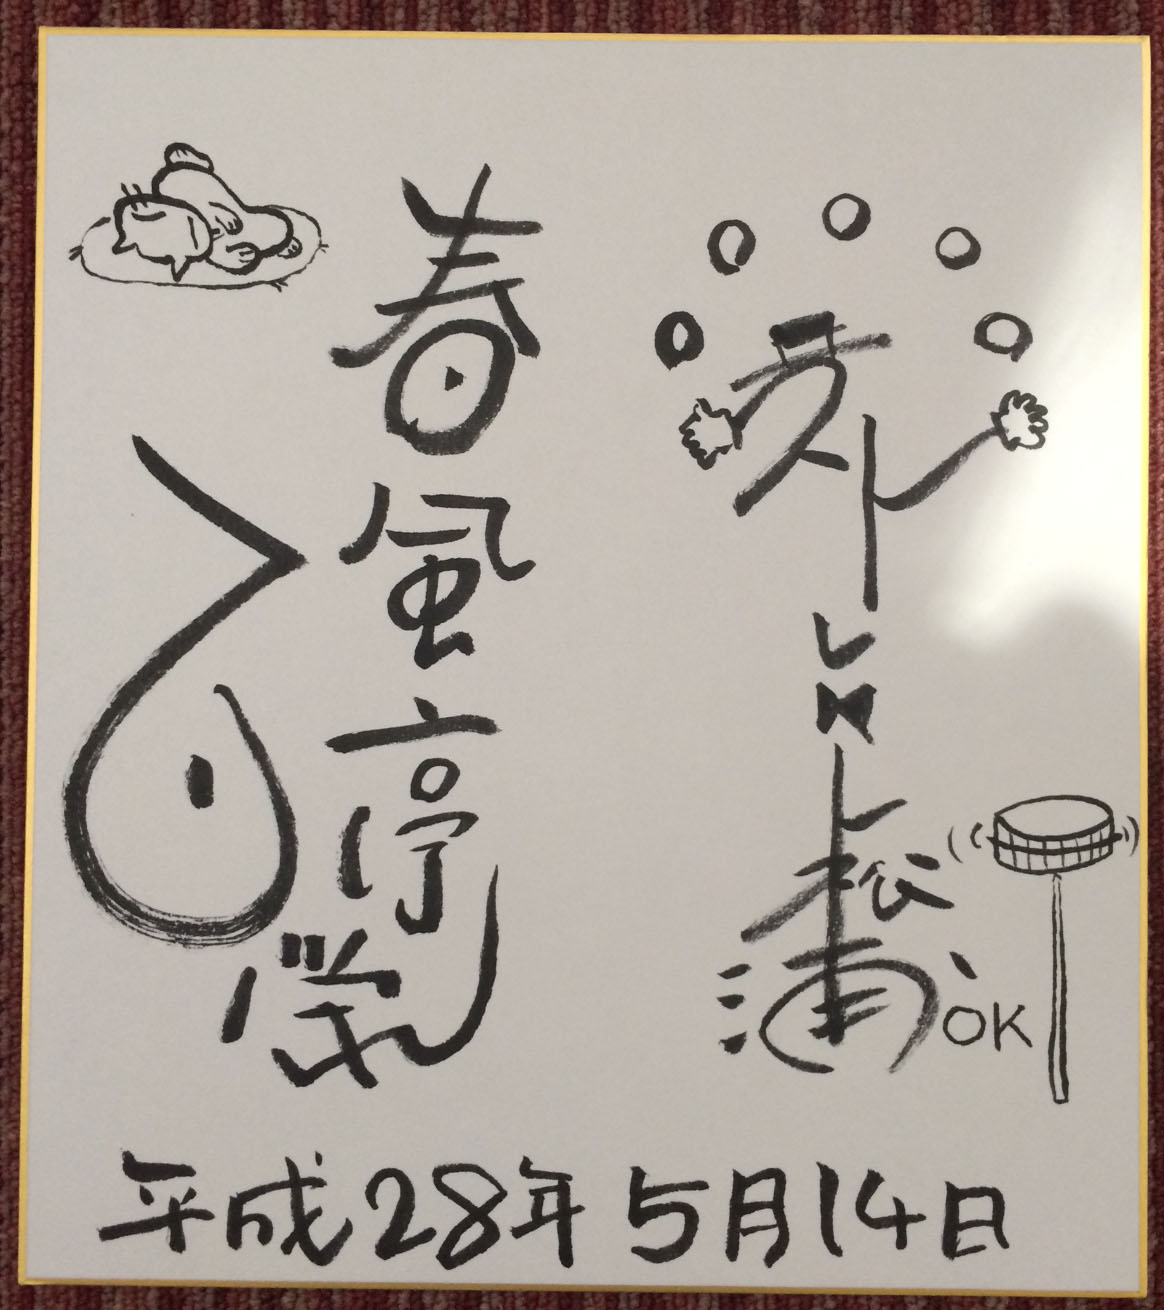 ストレート松浦
OK
春風亭百栄
平成28年5月14日